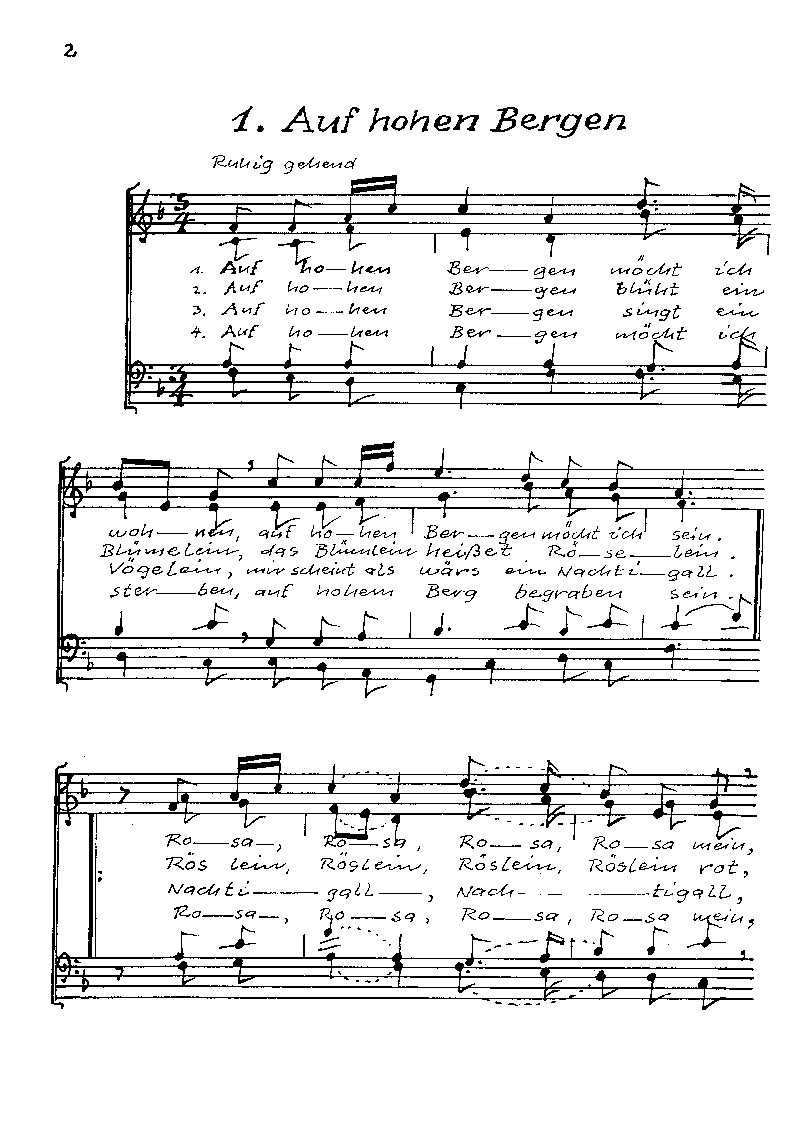 2
1. Auf hohen Bergen
Ruhig gehend
1. Auf ho—hen Ber—gen möcht ich
2. Auf ho—hen Ber—gen blüht ein
3. Auf ho—hen Ber—gen singt ein
4. Auf ho—hen Ber—gen möcht ich
woh—nen, auf ho—hen Ber—gen möcht ich sein.
Blümelein, das Blümlein heißet Rö—se—lein.
Vögelein, mir scheint als wärs ein Nachti—gall.
ster—ben, auf hohem Berg begraben sein.
Ro—sa—, Ro—sa, Ro—sa, Ro—sa mein,
Rös lein, Röslein, Röslein, Röslein rot,
Nachti—gall—, Nach- - —tigall,
Ro—sa—, Ro—sa, Ro—sa, Ro—sa mein,